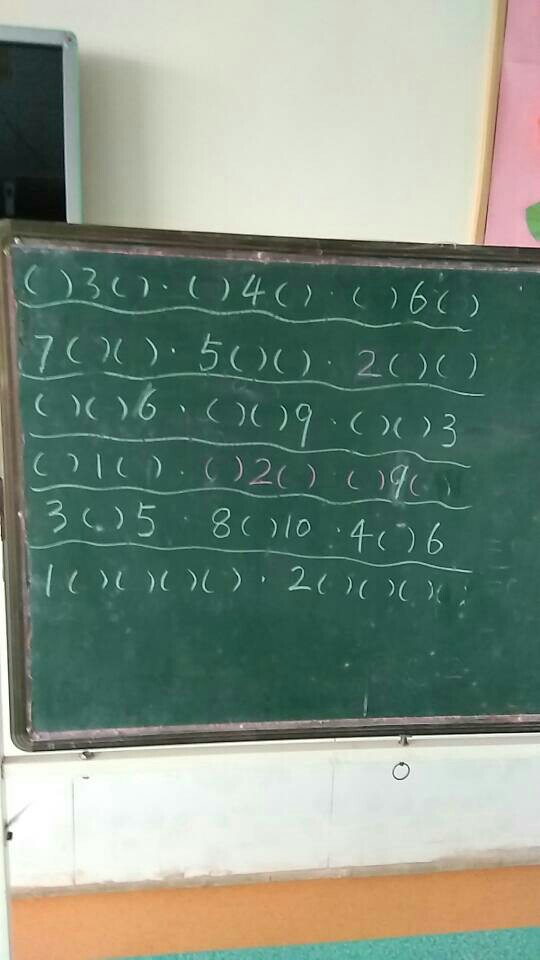 ( ) 3 ( ) · ( ) 4 ( ) · ( ) 6 ( )
7 ( ) ( ) · 5 ( ) ( ) · 2 ( ) ( )
( ) ( ) 6 · ( ) ( ) 9 · ( ) ( ) 3
( ) 1 ( ) · ( ) 2 ( ) · ( ) 9 ( )
3 ( ) 5 · 8 ( ) 10 · 4 ( ) 6
1 ( ) ( ) ( ) ( ) · 2 ( ) ( ) ( ) ( )